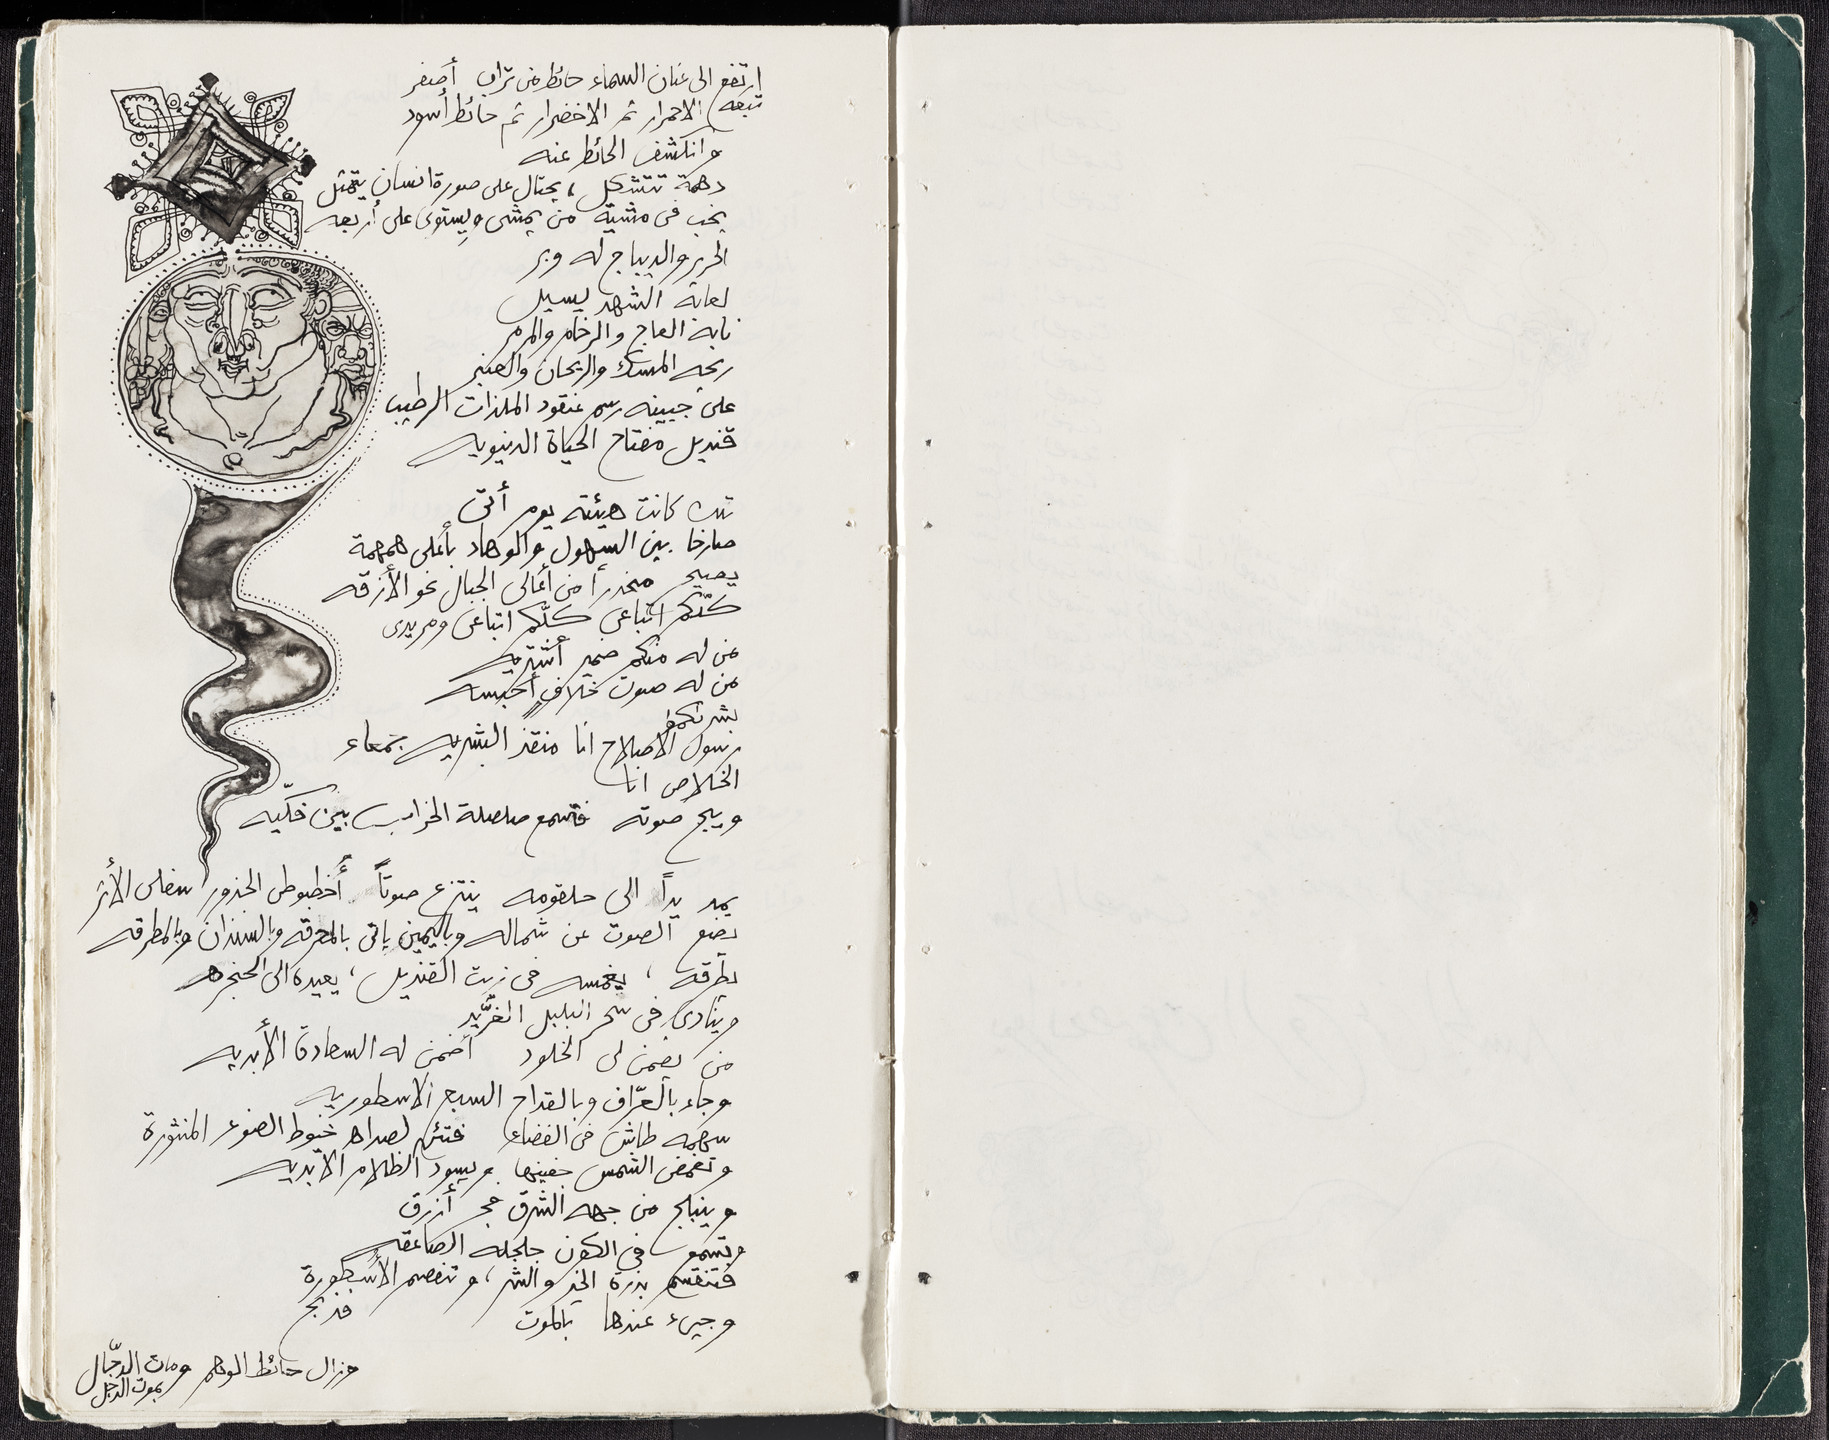 ارتفع الى عنان السماء حائط من تراب أصفر
تبعه الاحمرار ثم الاخضرار ثم حائط أسود
وانكشف الحائط عنه
دهمة تتشكل ، يحتال على صورة انسان يتمثل
يخب فى مشيته من يمشى ويستوى على أربعه
الحرير والديباج له وبر
لعابه الشهد يسيل
نابه العاج والرخام والمرمر
ريحه المسك والريحان والعنبر
على جبينه رسم عنقود الملذات الرطيب
قنديل مفتاح الحياة الدنيويه
تلك كانت هيئته يوم أتى
صارخا بين السهول والوهاد بأعلى همهمة
يصيح منحدرأ من أعالى الجبال نحو الأزقه
كلّكم اتباعى كلّكم اتباعى ومريدى
من له منكم ضمير أشتريه
من له صوت خلافى أحبسه
بشرتكموا
رسول الاصلاح انا منقذ البشريه جمعاء
الخلاص انا
ويبح صوته فتسمع صلصلة الخراب بين فكّيه
يمد يداً الى حلقومه ينتزع صوتاً أخطبوطى الجذور سفلس الأثر
يضع الصوت عن شماله وباليمين ياتى بالمحرقه وبالسندان وبالمطرقه
يطرقه ، يغمسه فى زيت القنديل ، يعيده الى الحنجره
وينادى فى سحر البلبل الغرّيد
من يضمن لى الخلود أضمن له السعادة الأبديه
وجاء بالعرّاف وبالقداح السبع الاسطوريه
سهمه طاش فى الفضاء فتئن لصداه خيوط الضوء المنثورة
وتغمض الشمس جفنيها ويسود الظلام الأبديه
وينبلج من جهه الشرق فجر أزرق
وتسمع فى الكون جلجله الصاعقه
فتنقسم بذرة الخير والشر ، وتنفصم الأسطورة
وجيء عندها بالموت فذبح
وزال حائط الوهم ومات الدجّال
بموت الدجل